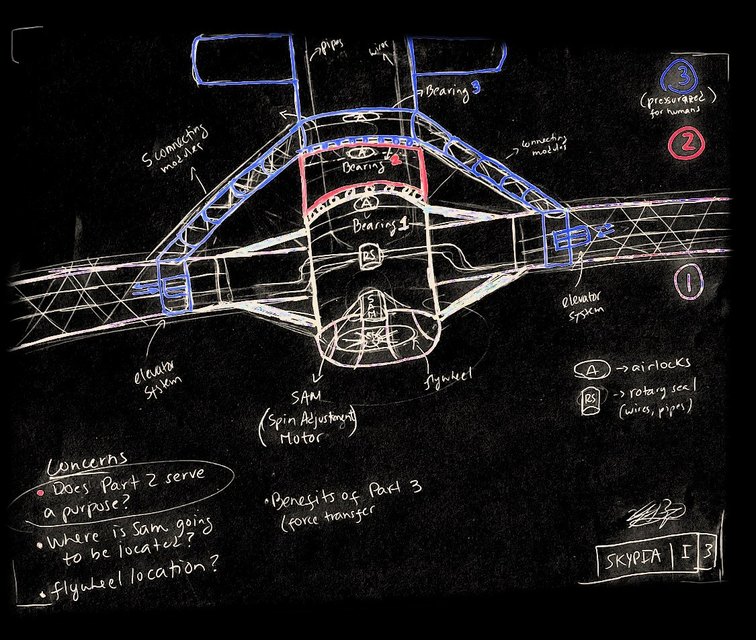 pipes
wires
Bearing 3
3
(pressurized)
for humans
2
5 connecting
modules
connecting
modules
A
A
Bearing 2
A
Bearing 1
RS
1
SAM
elevator
system
elevator
system
A → airlocks
RS → rotary seal
(wires, pipes)
flywheel
SAM
(Spin Adjustment
Motor)
Concerns
• Does Part 2 serve
a purpose?
• Where is Sam going
to be located?
• flywheel location?
• Benefits of Part 3
(force transfer
SKYPIA | I | 3